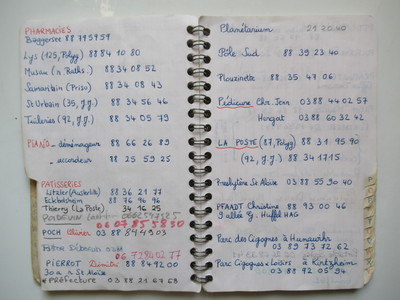 PHARMACIES
Buggersee 88 795959
Lys (125, Polyg) 88 84 10 80
Musau (n Raths.) 88 34 08 52
Samaritain (Prisu) 88 34 08 43
St Urbain (35, J.J.) 88 34 56 46
Tuileries (92, J.J.) 88 34 05 79
PIANO - déménageur 88 66 26 89
- accordeur 88 25 59 25
PATISSERIES
Litzler (Austerlitz) 88 36 21 77
Eckbolsheim 88 76 96 96
Thierry (La Poste) 34 16 25
06 07 85 58 30
POCH 03 88 84 49 03
06 73 94 02 77
PIERROT 88 84 92 00
30 a, r St Aloïse
Préfecture 03 88 21 67 68
Planétarium 21 20 40
Pôle Sud 88 39 23 40
Placinette 88 35 47 06
Pédicure Chr. Jean 03 88 44 02 57
03 88 60 32 42
LA POSTE (87, Polyg) 88 31 95 90
(92, J.J.) 88 34 17 15
Presbytère St Aloïse 03 88 55 90 40
PFAADT Christine 88 93 00 46
9 allée G. Huffel HAG
Parc des Cigognes à Hunawihr
03 89 73 72 62
Parc Cigognes & Loisirs à Kintzheim
03 88 92 05 94